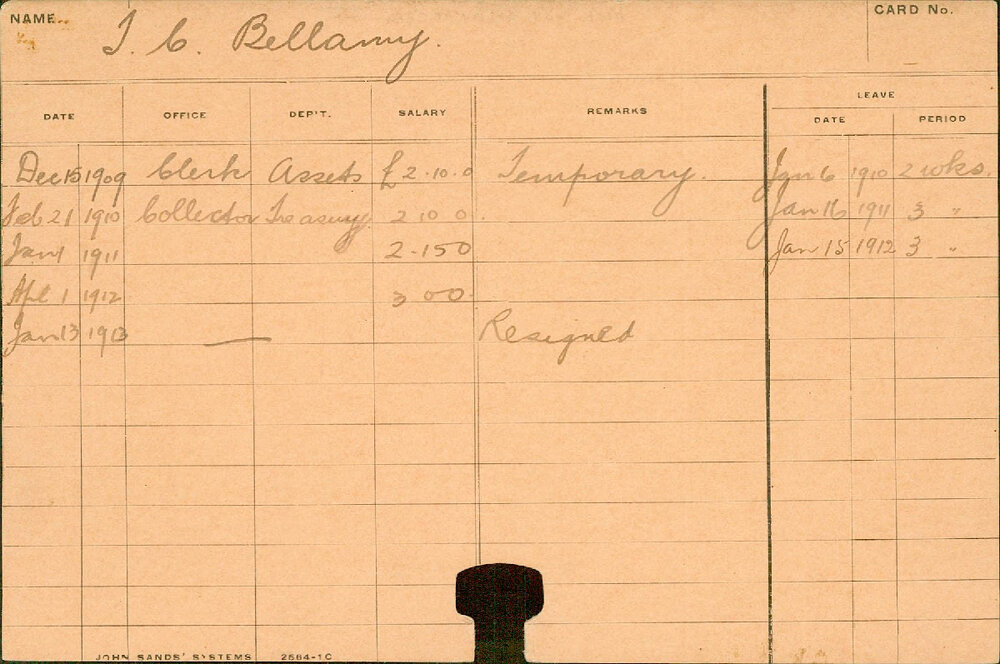 NAME
CARD No.
T. C. Bellamy.
LEAVE
DATE OFFICE DEP'T. SALARY REMARKS DATE PERIOD
Dec 15 1909 Clerk Assets £2.10.0 Temporary. Jan 6 1910 2 wks.
Feb 21 1910 Collector Treasury 2 10 0. Jan 16 1911 3 "
Jan 1 1911 2-15 0 Jan 15 1912 3 "
Apl 1 1912 3 0 0
Jan 13 1913 — Resigned
JOHN SANDS' SYSTEMS 2564-1C